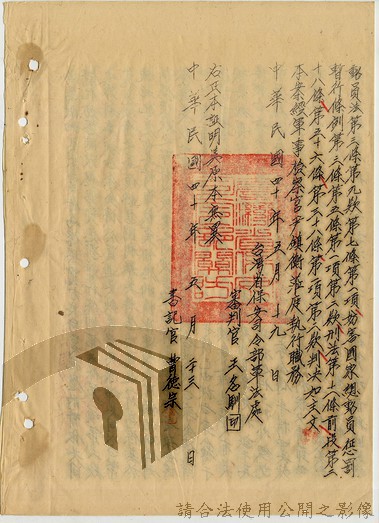 動員法第三條第九款第七條第一項妨害國家總動員懲罰
暫行條例第三條第五條第一項第八款刑法第十一條前段第三
十八條第五十六條第三十八條第一項第八款判決如主文
本案經軍事檢察官尹鎮衡蒞庭執行職務
中華民國四十年五月十九日
台灣省保安司令部軍法處
審判官 王名馴 印
右正本證明與原本無異
中華民國四十年五月二十三日
書記官 曹德榮
請合法使用公開之影像